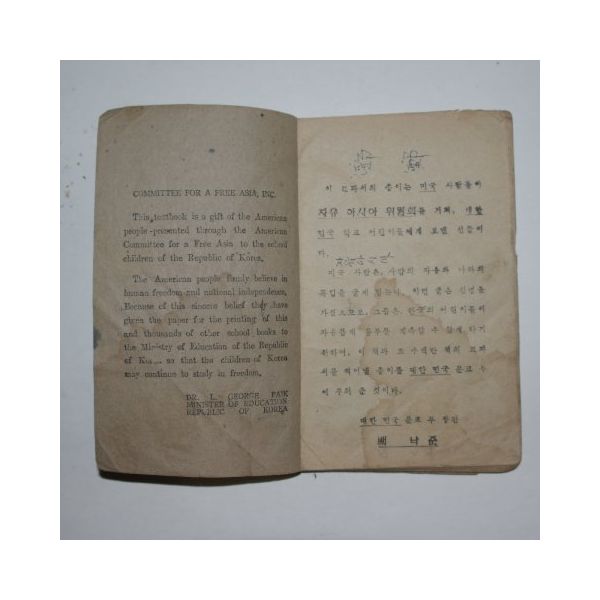 COMMITTEE FOR A FREE ASIA, INC.
This textbook is a gift of the American
people presented through the American
Committee for a Free Asia to the school
children of the Republic of Korea.
The American people firmly believe in
human freedom and national independence.
Because of this sincere belief they have
given the paper for the printing of this
and thousands of other school books to
the Ministry of Education of the Republic
of so that the children of Korea
may continue to study in freedom.
DR. L. GEORGE PAIK
MINISTER OF EDUCATION
REPUBLIC OF KOREA
이 교과서의 종이는 미국 사람들이
자유 아시아 위원회를 거쳐, 대한
민국 학교 어린이들에게 보낸 선물이
다.
미국 사람은, 사람의 자유와 나라의
독립을 굳게 믿는다. 이런 굳은 신념을
가짐으로, 그들은, 한국의 어린이들이
자유롭게 공부를 계속할 수 있게 하기
위하여, 이 책과 또 수백만 책의 교과
서를 박이는 종이를 대한 민국 문교 부
에 주는 것이다.
대한 민국 문교 부 장관
낙